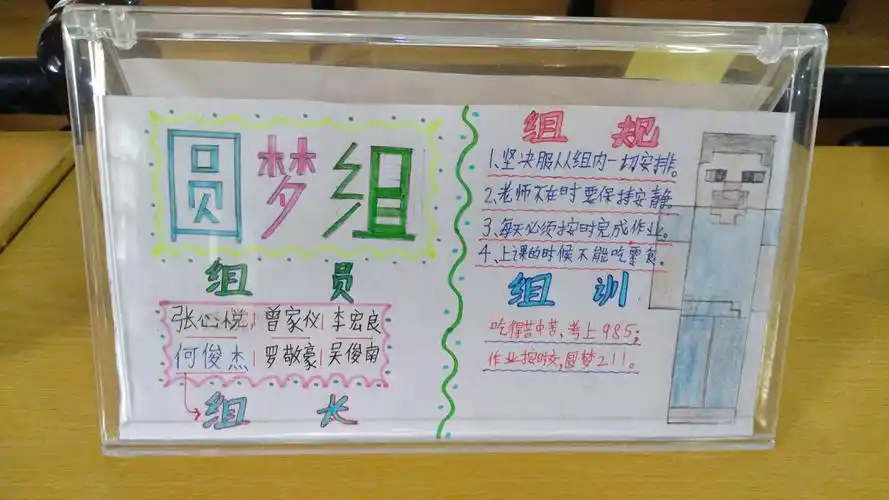 圆梦组
组员
张心悦 曾家仪 李宏良
何俊杰 罗敬豪 吴俊南
组长
组规
1、坚决服从组内一切安排。
2、老师不在时要保持安静。
3、每天必须按时完成作业。
4、上课的时候不能吃零食。
组训
吃得苦中苦,考上985;
作业按时交,圆梦211。